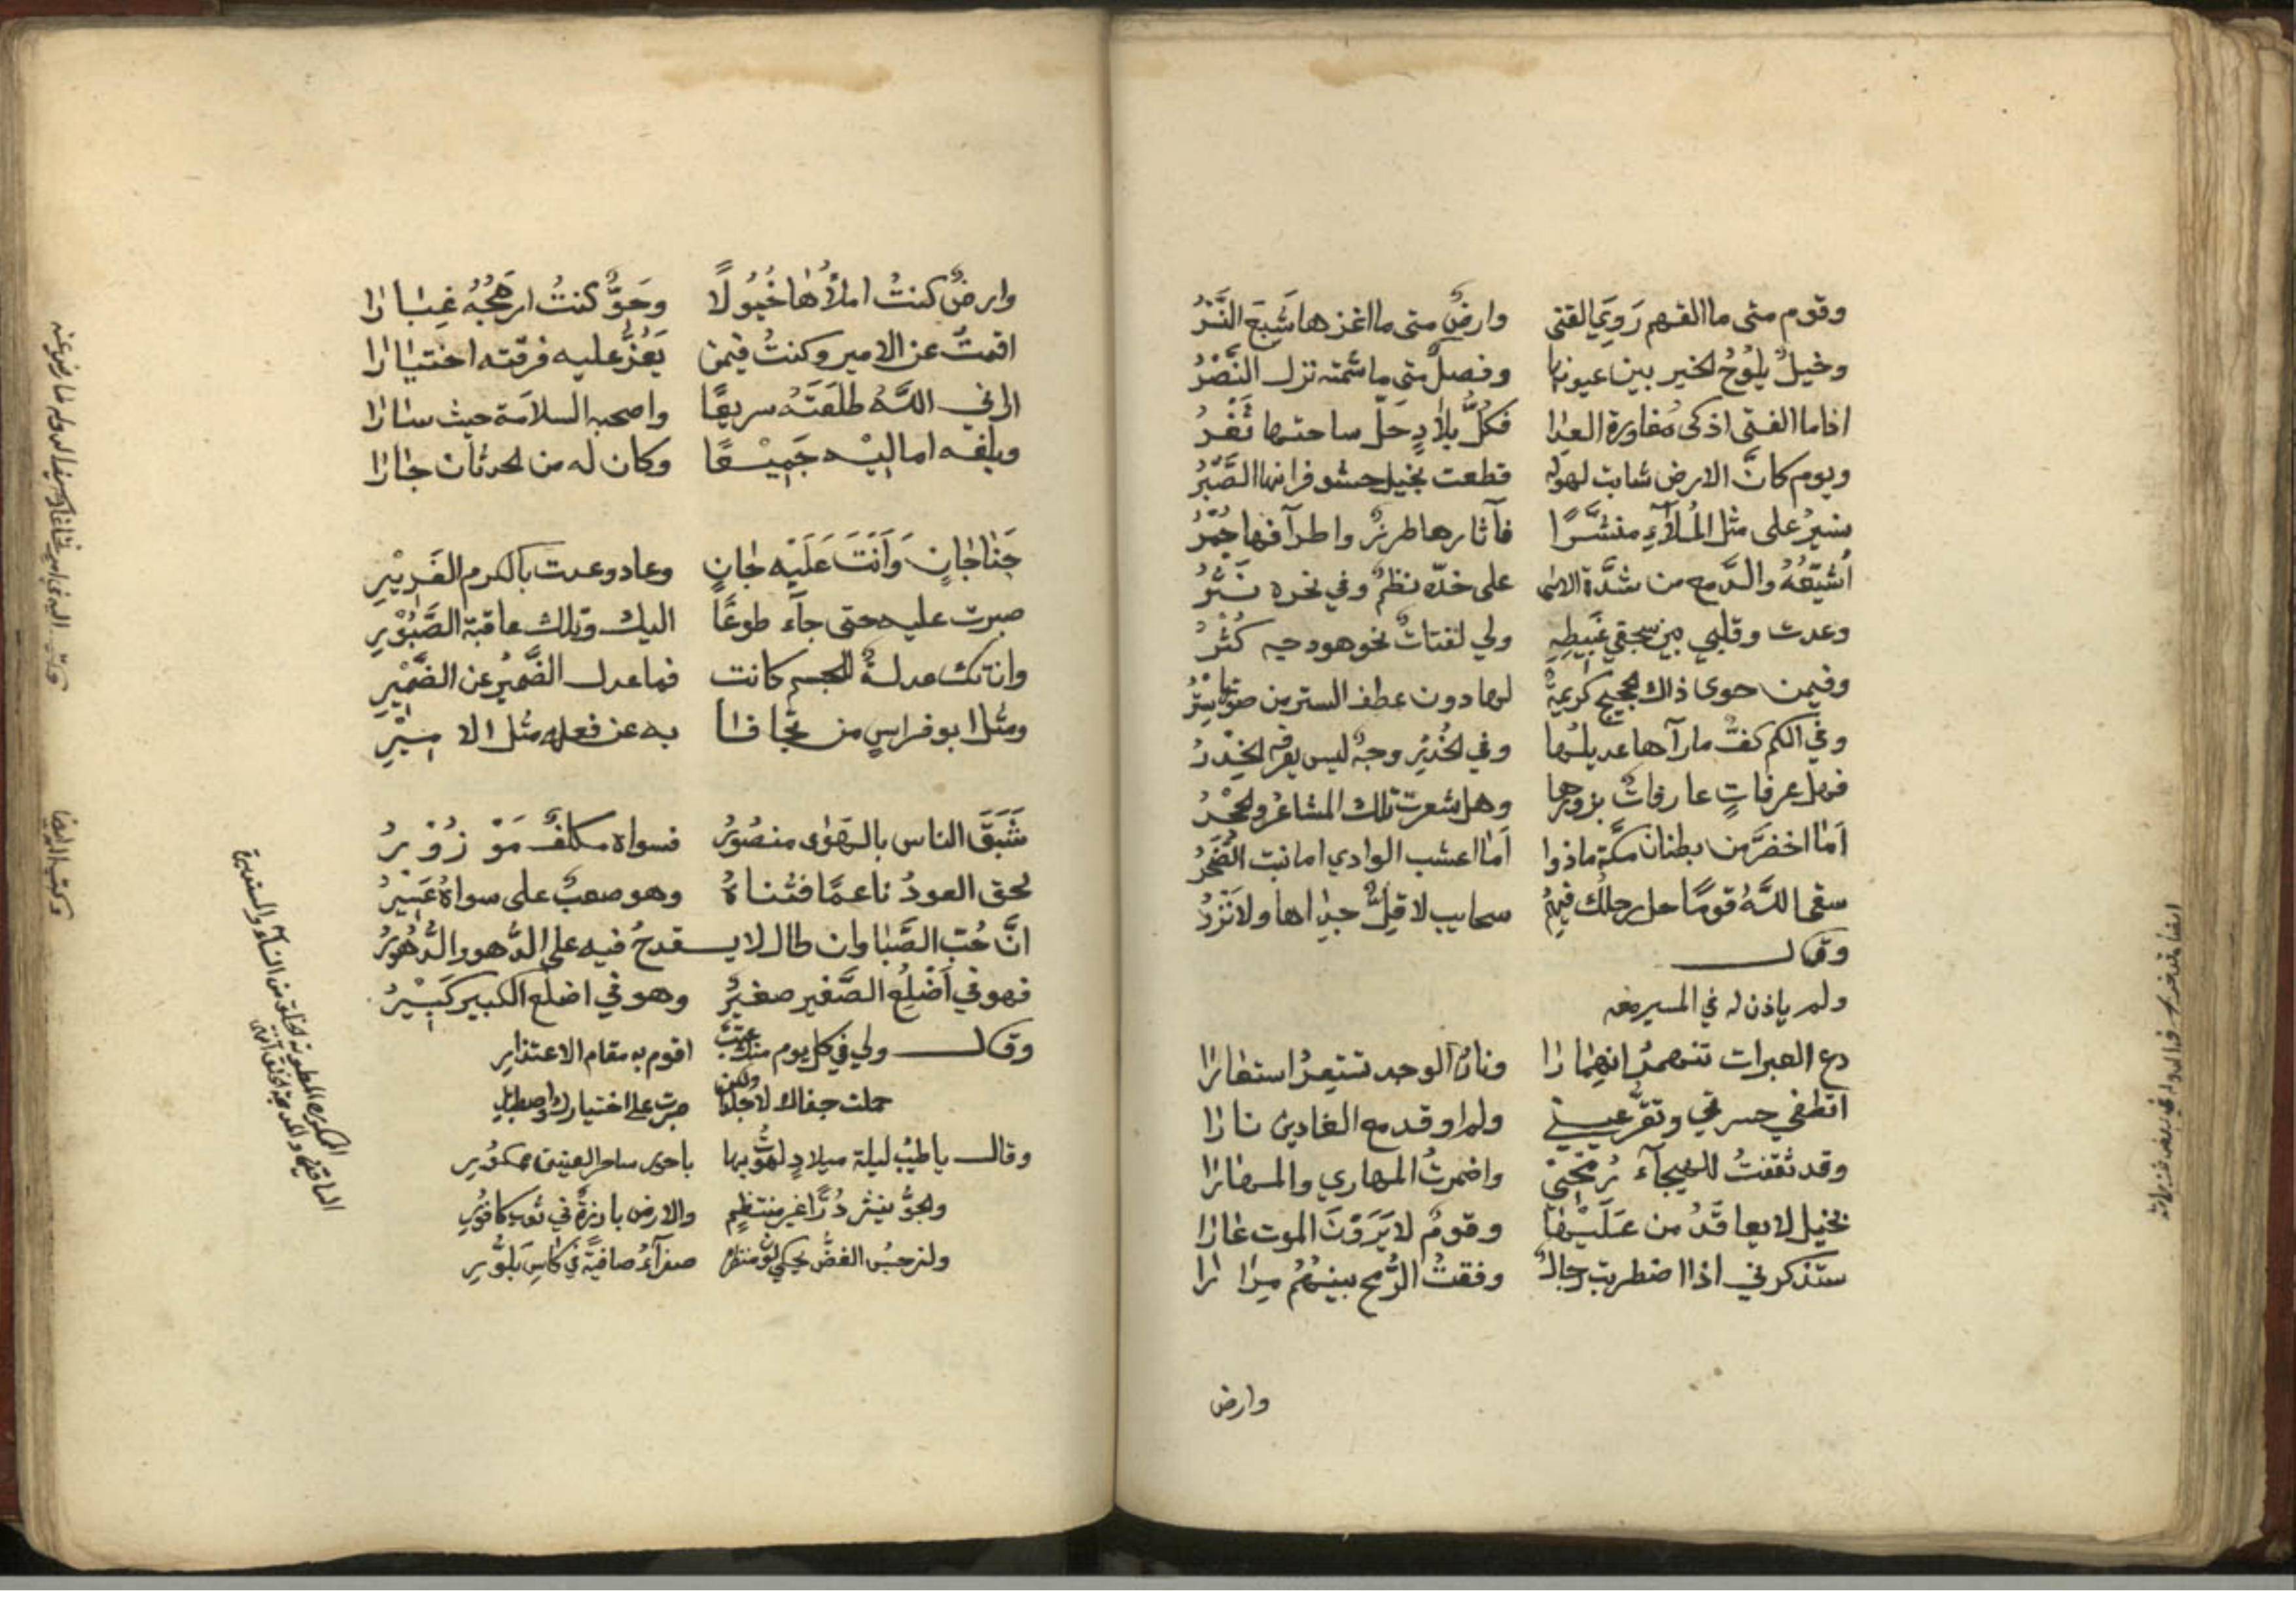 وقوم متى ما القهم رَوِيَ القنى وارضٌ متى ما اغزها شَبِعَ النَّسْرُ
وخيلٌ يلوُحُ الخير بين عيونها وفصلٌ متى ما شمته نزل النَّصْرُ
اذا ما الفتى اذكى مُغاورة العدا فكلُّ بلادٍ حَلَّ ساحتها ثَغْرُ
ويوم كانَّ الارض شابت لهوله قطعت بخيل حشو فرسانها الصَّبْرُ
تسيرُ على مثل المُلآءِ منشَّرًا فآثارها طرزٌ واطرآفها حُمْرُ
اُشَيِّعُهُ والدَّمع من شدَّة الاسى على خدّه نظمٌ وفي نحره نَثْرُ
وعدت وقلبي بين سجفي غَبِيطِهِ ولي لفتاتٌ نحو هودجه كُثْرُ
وفيمن حوى ذاك الحجيج كريمةٌ لها دون عطف الستر من صونها سِتْرُ
وفي الكم كفٌّ مارآها عديلها وفي الخدر وجهٌ ليس يعرفه الخِدْرُ
فهل عرفاتٍ عارفاتٌ بزورها وهل شعرت تلك المشاعرُ والحِجْرُ
اَما اخضرَّ من بطنان مكّة ماذوا اَما اعشب الوادي اما نبت الصَّخرُ
سقى اللّهُ قومًا حل رحلك فيهمُ سحايب لا قِلٌّ جداها ولا نَزْرُ
وقال
ولم ياذن له في المسير معه
دع العبرات تنهمرُ انهمارا ونارُ الوجد تستعرُ استعارا
اتطفي حسرتي وتقرّ عيني ولم اوقد مع الغادين نارا
وقد ثقّفتُ للهيجآء رُمحي واضمرتُ المهاري والمهارا
بخيل لا يعاقَدُ من عَلَيْها وقومٌ لا يَرَوْنَ الموت عارا
ستذكرني اذا اضطربت رجالٌ وفقتُ الرُّمح بينهُمُ مرارا
وارض
وارضٌ كنتُ املأُها خُيُولًا وجَوٌّ كنتُ ارهِجُهُ غِبارا
اقمتُ عن الامير وكنتُ فيمن يَعُزُّ عليه فرقته اختيارا
اراني اللّهُ طلعَتَهُ سريعًا واصحبه السلامة حيث سارا
وبلّغه اماليْه جَمِيْعًا وكان له من الحدثان جارا
جَنا جانٍ وَاَنتَ عَلَيْه جانٍ وعاد وعدت بالكرم الغَريْرِ
صبرت عليه حتى جآء طوعًا اليك وتلك عاقبة الصَّبُوْرِ
وان تك عدلةٌ للجسم كانت فما عدل الضَّميْرُ عن الضَّمِيْرِ
ومثل ابو فراسٍ من تجافا به عن فعله مثل الامِيْرِ
سَبَقَ الناس بالهَوٰى منصُوْرُ فسواه مكلّفٌ مَوْزُوْرُ
لحق العودُ ناعمًا فثناهُ وهو صعبٌ على سواهُ عَسِيْرُ
انَّ حُبّ الصَّبا وان طال لا يـقدحُ فيه على الدُّهور الدُّهُوْرُ
فهو في اَضْلُعِ الصَّغير صغيرٌ وهو في اضلع الكبير كَبِيْرُ
وقال ولي في كل يوم منك عتبٌ اقوم به مقام الاعتذارِ
حملت جفاك لا جلدًا ولكن صبرت على اختيارك واصطبارِ
وقال يا طيبُ ليلة ميلادٍ لهوْتُ بها باحور ساحر العينين ممكوْرِ
والجوُّ ينثر دُرًّا غير منتظمٍ والارض بارزةٌ في ثوب كافُوْرِ
والنرجسُ الغضُّ يحكي لونُ منظره صفرآءُ صافيةً في كاسِ بَلُّورِ